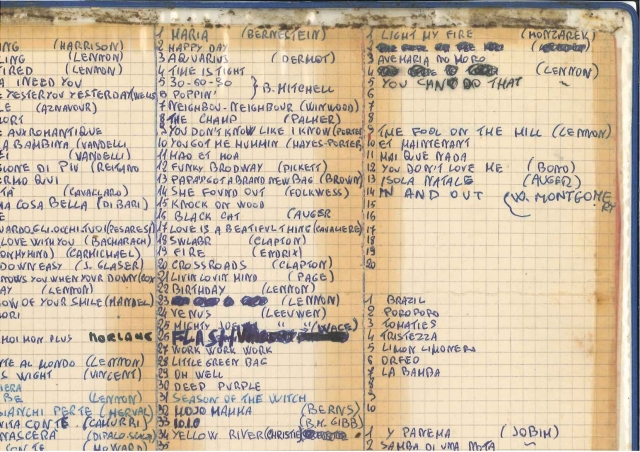 NG (HARRISON)
LING (LENNON)
IRED (LENNON)
A I NEED YOU
YESTERYOU YESTERDAY (WELLS
LE (AZNAVOUR)
ORT
E AUX ROMANTIQUE
A BAMBINA (VANDELLI
EI (VANDELLI)
SIONE DI PIU (REITANO
ERMO QUI
TA (CAVALLARO)
MA COSA BELLA (DI BARI)
E
UARDO, GLI OCCHI TUOI (PESARESI
LOVE WITH YOU (BACHARACH)
(CARMICHAEL)
DOWN EASY (J. GLASER)
NOWS YOU WHEN YOUR DOWN (COX
AY (LENNON)
OW OF YOUR SMILE (MANDEL
ORI
MOI NON PLUS
NTE AL MONDO (LENNON)
S WIGHT (VINCENT)
IERA
BE (LENNON)
BIANCHI PERTE
VITA CONTE (CAMURRI)
NASCERA
CONTE (HOWARD)
1 MARIA (BERNESTEIN)
2 HAPPY DAY
3 AQUARIUS (DERMOT)
4 TIME IS TIGHT
5 30-60-90
6 POPPIN'
B. MITCHELL
7 NEIGHBOU-NEIGHBOUR (WINWOOD)
8 THE CHAMP (PALMER)
9 YOU DON'T KNOW LIKE I KNOW (PORTER
10 YOU GOT ME HUMMIN (HAYES-PORTER
11 MAO ET MOA
12 FUNKY BRODWAY (PICKETT)
13 PAPA'S GOT A BRAND NEW BAG (BROWN)
14 SHE FOUND OUT (FOLKWESS)
15 KNOCK ON WOOD
16 BLACK CAT (AUGER
17 LOVE IS A BEATIFUL THING (CAVALIERE)
18 SWLABR (CLAPTON)
19 FIRE (ENDRIX)
20 CROSSROADS (CLAPTON)
21 LIVIN LOVIN MIND (PAGE)
22 BIRTHDAY (LENNON)
23 (LENNON)
24 VENUS (LEEUWEN)
25 MIGHTY JOE " "
26 FLASH
27 WORK WORK WORK
28 LITTLE GREEN BAG
29 OH WELL
30 DEEP PURPLE
31 SEASON OF THE WITCH
32 MOJO MAMMA (BERNS)
33 I.O.I.O (B.M. GIBB)
34 YELLOW RIVER (CHRISTIE)
35
1 LIGHT MY FIRE (MONZAREK)
2
3 AVEMARIA NO MORO
4 (LENNON)
5 YOU CAN DO THAT ~
6
7
8
9 THE FOOL ON THE HILL (LENNON)
10 ET MAINTENANT
11 MAI QUE NADA
12 YOU DON'T LOVE ME (BONO)
13 ISOLA NATALE (AUGER)
14 IN AND OUT (W. MONTGOMERY
15
16
17
18
19
20
1 BRAZIL
2 POROPOPO
3 TOMATIES
4 TRISTEZZA
5 LIMON LIMONERO
6 ORFEO
7 LA BAMBA
8
9
10
1 Y PANEMA (JOBIM)
2 SAMBA DI UNA NOTA ~